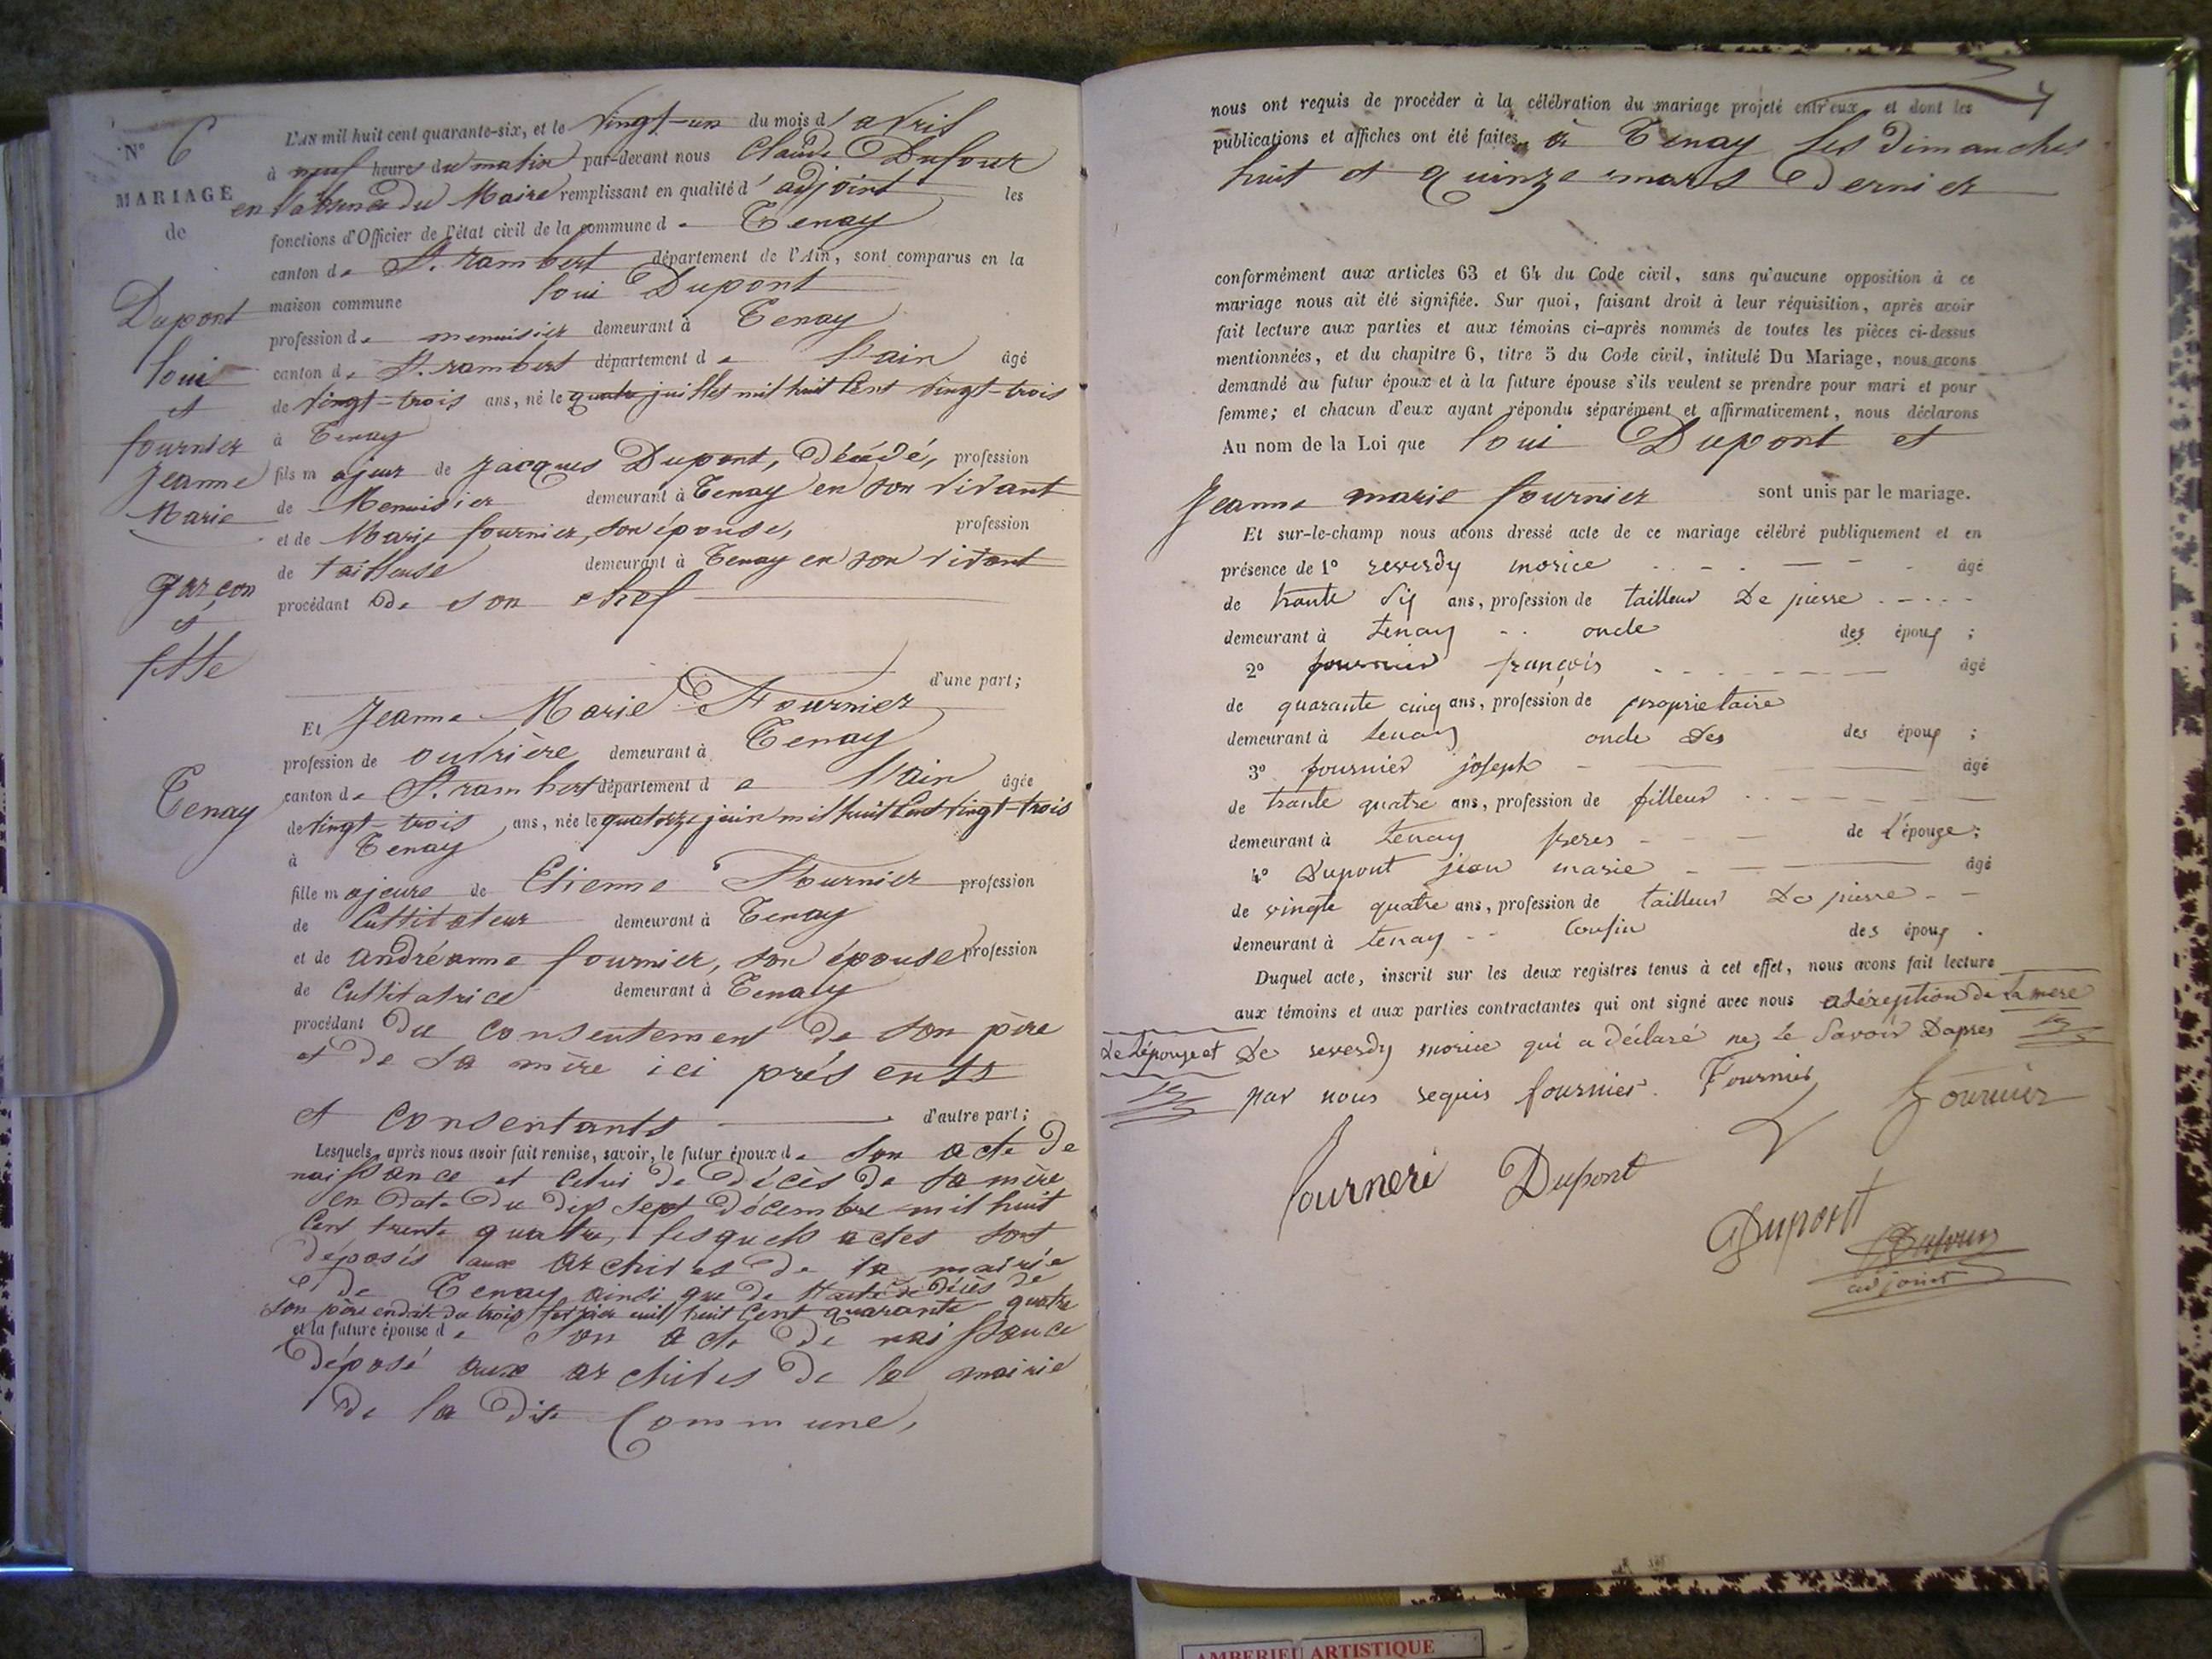 N° 6
MARIAGE
de
Dupont
loui
et
fournier
Jeanne
Marie
garçon
et
fille
Tenay
L'AN mil huit cent quarante-six, et le vingt-un du mois d'avril
à neuf heures du matin par-devant nous Claude Dufour
en l'absence du Maire remplissant en qualité d'adjoint les
fonctions d'Officier de l'état civil de la commune de Tenay
canton de St. rambert département de l'Ain, sont comparus en la
maison commune loui Dupont
profession de menuisier demeurant à Tenay
canton de St. rambert département de l'ain âgé
de vingt-trois ans, né le quatre juillet mil huit Cent vingt-trois
à Tenay
fils majeur de Jacques Dupont, Décédé, profession
de Menuisier demeurant à Tenay en son vivant
et de Marie fournier, son épouse, profession
de tailleuse demeurant à Tenay en son vivant
procédant de son chef
d'une part;
Et Jeanne Marie Fournier
profession de ouvrière demeurant à Tenay
canton de St. rambert département de l'ain âgée
de vingt-trois ans, née le quatorze juin mil huit Cent vingt-trois
à Tenay
fille majeure de Etienne Fournier profession
de Cultivateur demeurant à Tenay
et de andréanne fournier, son épouse profession
de Cultivatrice demeurant à Tenay
procédant du consentement de son père
et de sa mère ici présents
et consentants d'autre part;
Lesquels, après nous avoir fait remise, savoir, le futur époux de son acte de
naissance et celui de décès de sa mère
en date du dix sept décembre mil huit
Cent trente quatre, lesquels actes sont
déposés aux archives de la mairie
de Tenay ainsi que de l'acte de décès de
son père en date du trois février mil huit Cent quarante quatre
et la future épouse de son acte de naissance
déposé aux archives de la mairie
de la dite Commune,
7
nous ont requis de procéder à la célébration du mariage projeté entr'eux, et dont les
publications et affiches ont été faites à Tenay les dimanches
huit et quinze mars Dernier
conformément aux articles 63 et 64 du Code civil, sans qu'aucune opposition à ce
mariage nous ait été signifiée. Sur quoi, faisant droit à leur réquisition, après avoir
fait lecture aux parties et aux témoins ci-après nommés de toutes les pièces ci-dessus
mentionnées, et du chapitre 6, titre 5 du Code civil, intitulé Du Mariage, nous avons
demandé au futur époux et à la future épouse s'ils veulent se prendre pour mari et pour
femme; et chacun d'eux ayant répondu séparément et affirmativement, nous déclarons
Au nom de la Loi que loui Dupont et
Jeanne marie fournier sont unis par le mariage.
Et sur-le-champ nous avons dressé acte de ce mariage célébré publiquement et en
présence de 1° reverdy morice âgé
de trante six ans, profession de tailleur De pierre
demeurant à tenay oncle des époux ;
2° fournier françois âgé
de quarante cinq ans, profession de proprietaire
demeurant à tenay oncle des des époux ;
3° fournier joseph âgé
de trante quatre ans, profession de filleur
demeurant à tenay freres de l'épouze;
4° Dupont jean marie âgé
de vingte quatre ans, profession de tailleur De pierre
demeurant à tenay Cousin des époux .
Duquel acte, inscrit sur les deux registres tenus à cet effet, nous avons fait lecture
aux témoins et aux parties contractantes qui ont signé avec nous a léxeption de la mere
de lépouze et De reverdy morice qui a déclaré ne le Savoir Dapres
par nous requis fournier. Fournier Fournier
fourneri Dupont
Dupont
Dufour
adjoint
AMBERIEU ARTISTIQUE